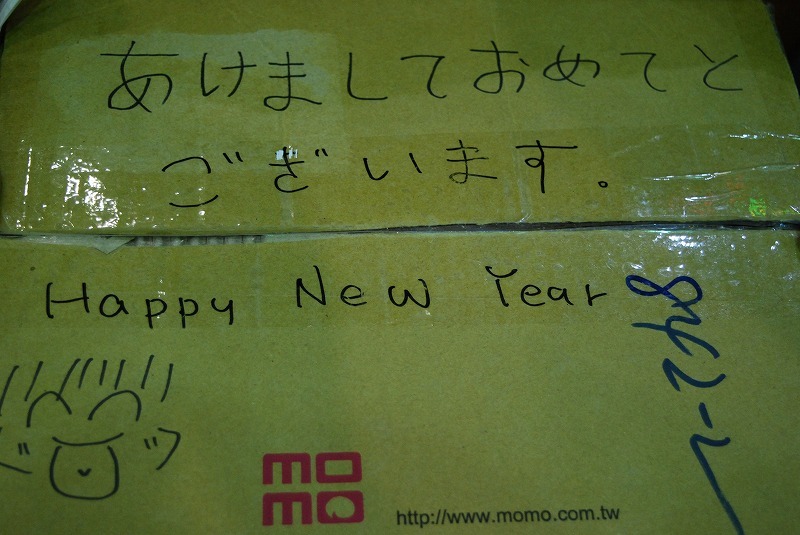 あけましておめでと
ございます。
Happy New Year
momo
http://www.momo.com.tw